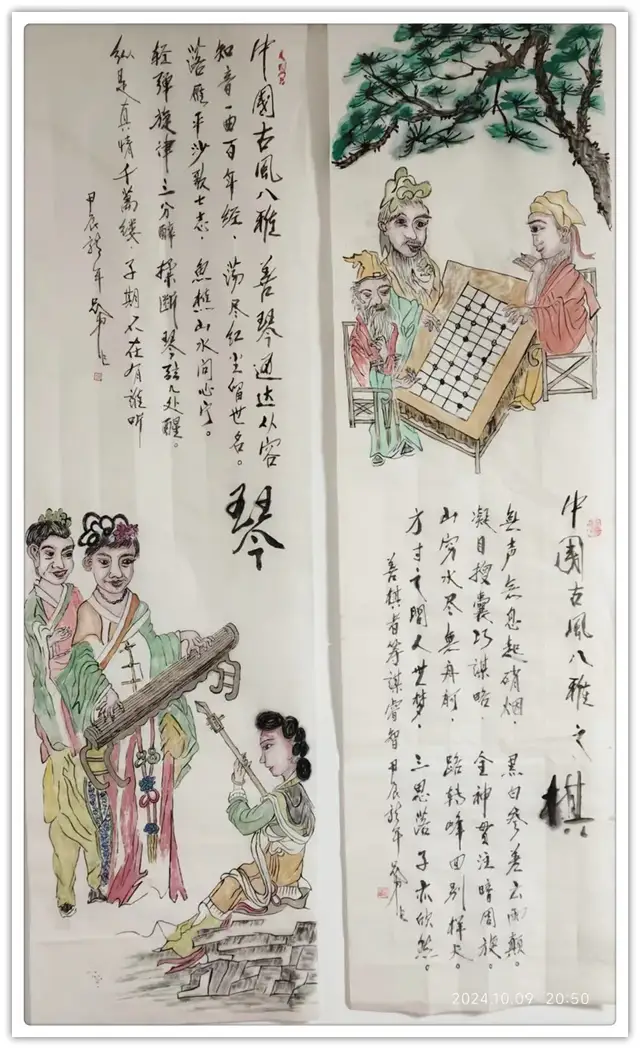 中國古風八雅 善琴通达从容
知音一曲百年经，荡尽红尘留世名。
落雁平沙歌士志，鱼樵山水问心宁。
轻弹旋律三分醉 揉断琴弦几处醒。
纵是真情千萬缕，子期不在有谁听
甲辰龙年
琴
中國古風八雅之棋
無声無息起硝烟，黑白参差云雨颠。
凝目搜囊巧谋略，全神贯注暗周旋。
山穷水尽無舟舸，路转峰回别样天。
方寸之間人世梦，三思落子亦欣然。
善棋者筹谋睿智 甲辰龙年
2024.10.09 20:50